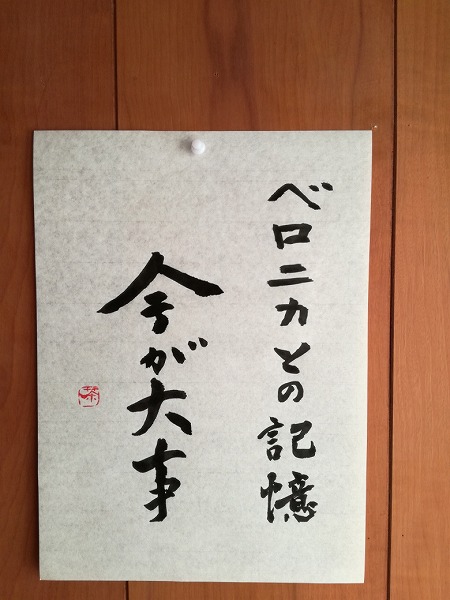 ベロニカとの記憶
今が大事